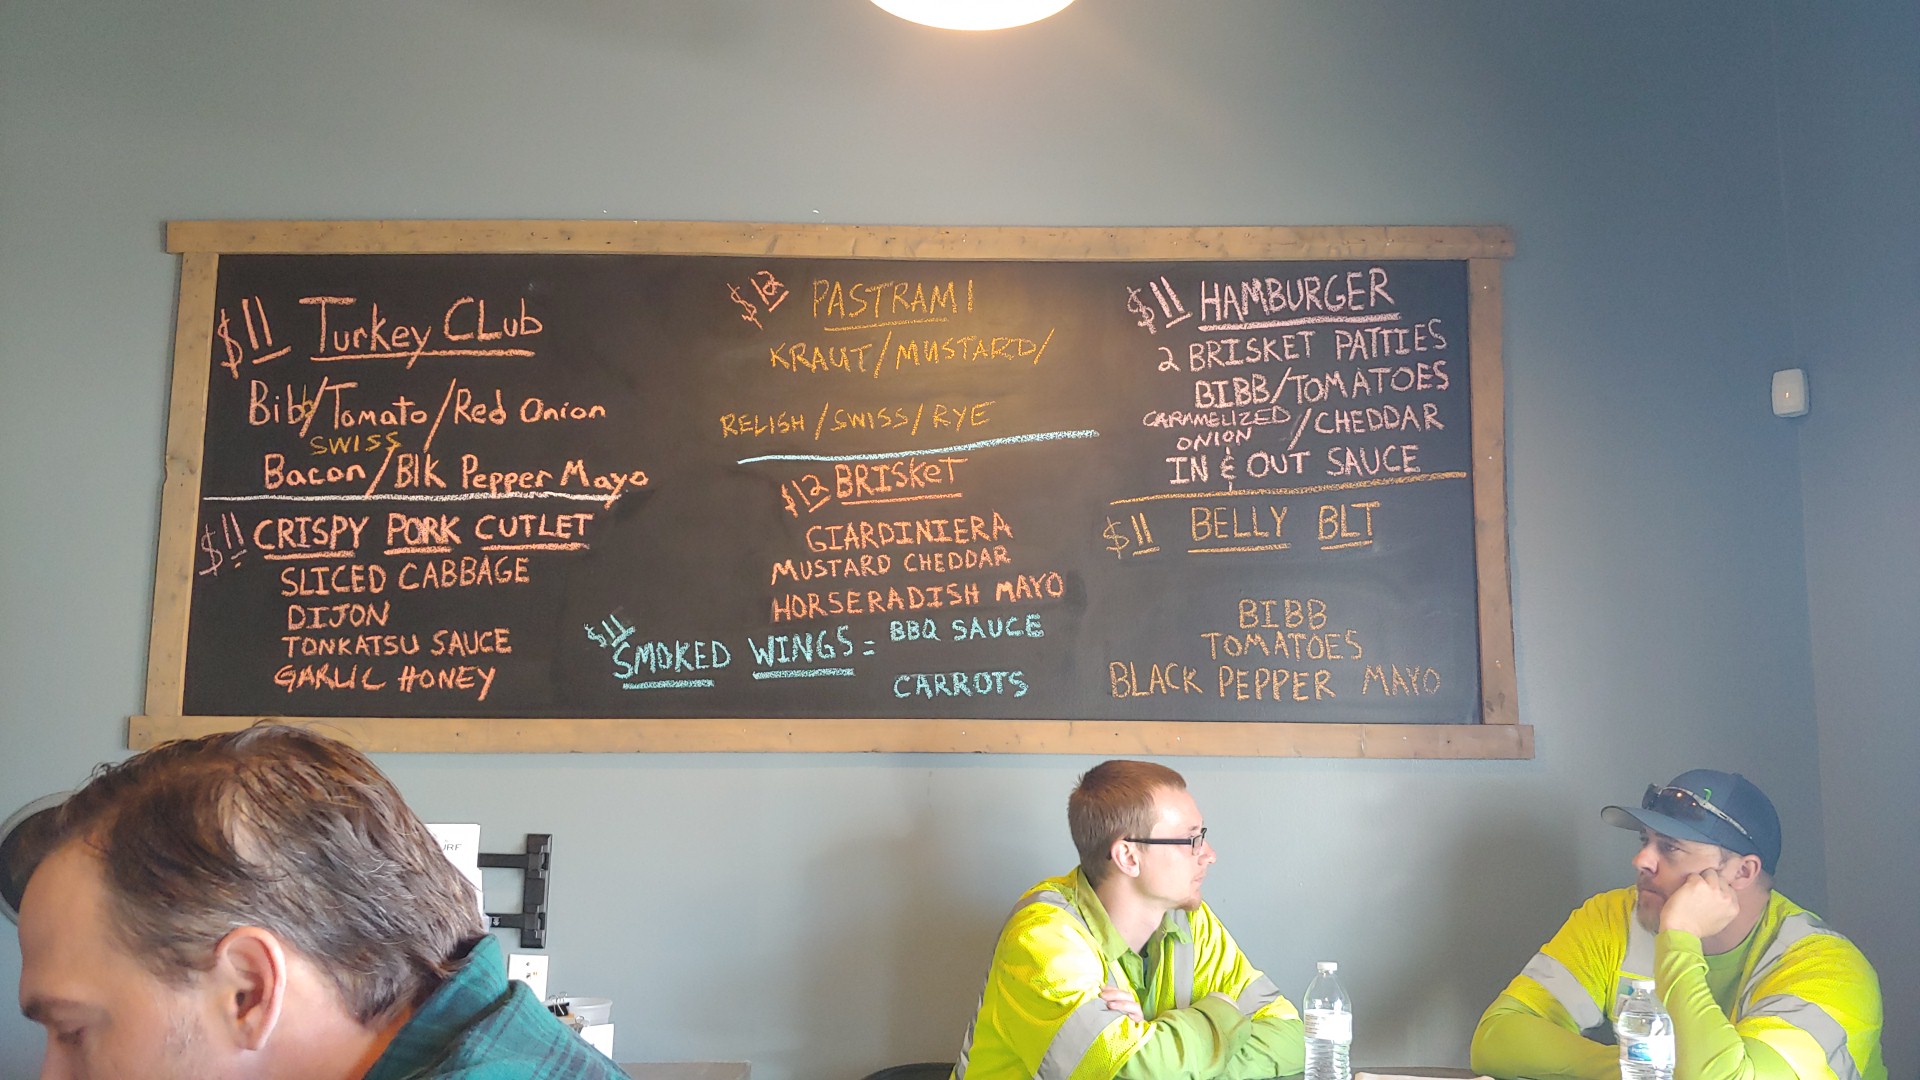 $11 Turkey CLub
Bibb/Tomato/Red Onion
SWISS
Bacon/Blk Pepper Mayo
$11 CRISPY PORK CUTLET
SLICED CABBAGE
DIJON
TONKATSU SAUCE
GARLIC HONEY
$12 PASTRAMI
KRAUT/MUSTARD/
RELISH/SWISS/RYE
$12 BRISKET
GIARDINIERA
MUSTARD CHEDDAR
HORSERADISH MAYO
$11 SMOKED WINGS = BBQ SAUCE
CARROTS
$11 HAMBURGER
2 BRISKET PATTIES
BIBB/TOMATOES
CARAMELIZED
ONION /CHEDDAR
IN & OUT SAUCE
$11 BELLY BLT
BIBB
TOMATOES
BLACK PEPPER MAYO